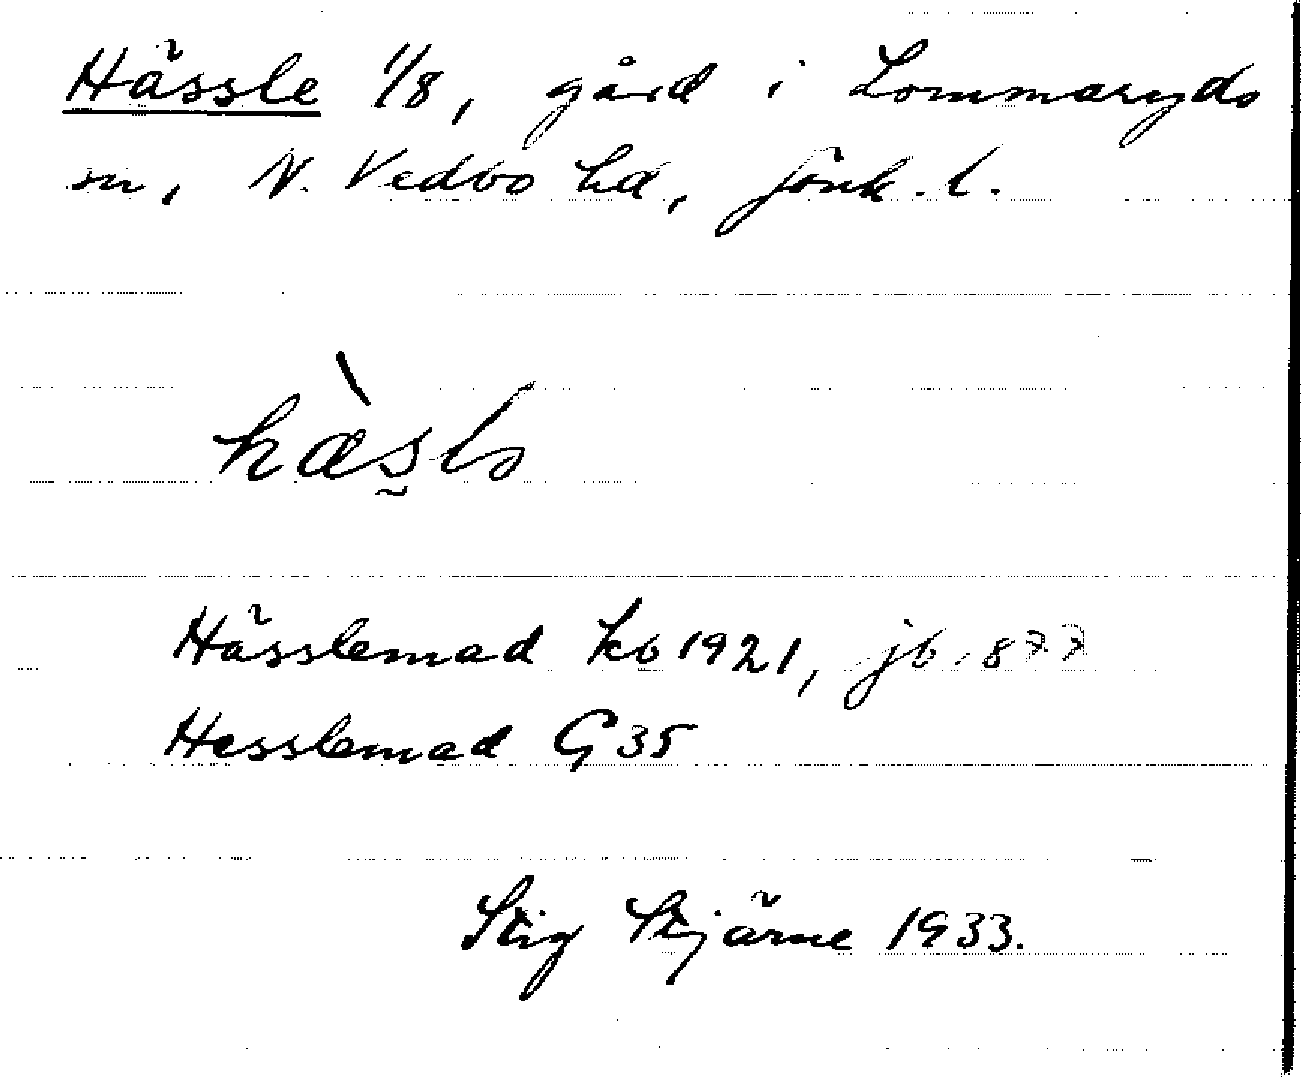 Hässle 1/8, gård i Lommaryds
sn, N. Vedbo hd, Jönk. l.
hæ̀s̰lə
Hässlemad kb 1921, jb 1877
Hesslemad G 35
Stig Stjärne 1933.